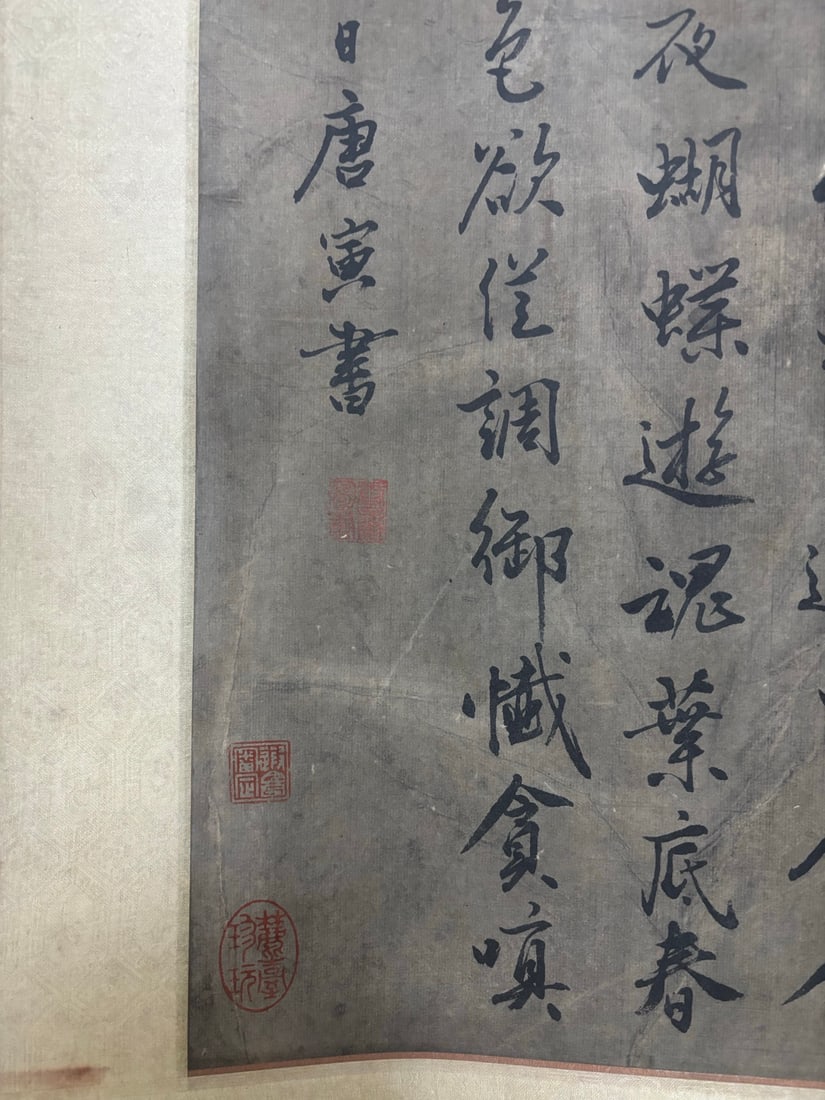 夜蝴蝶遊魂葉底春
色欲從調御懺貪嗔
日唐寅書
珍玩